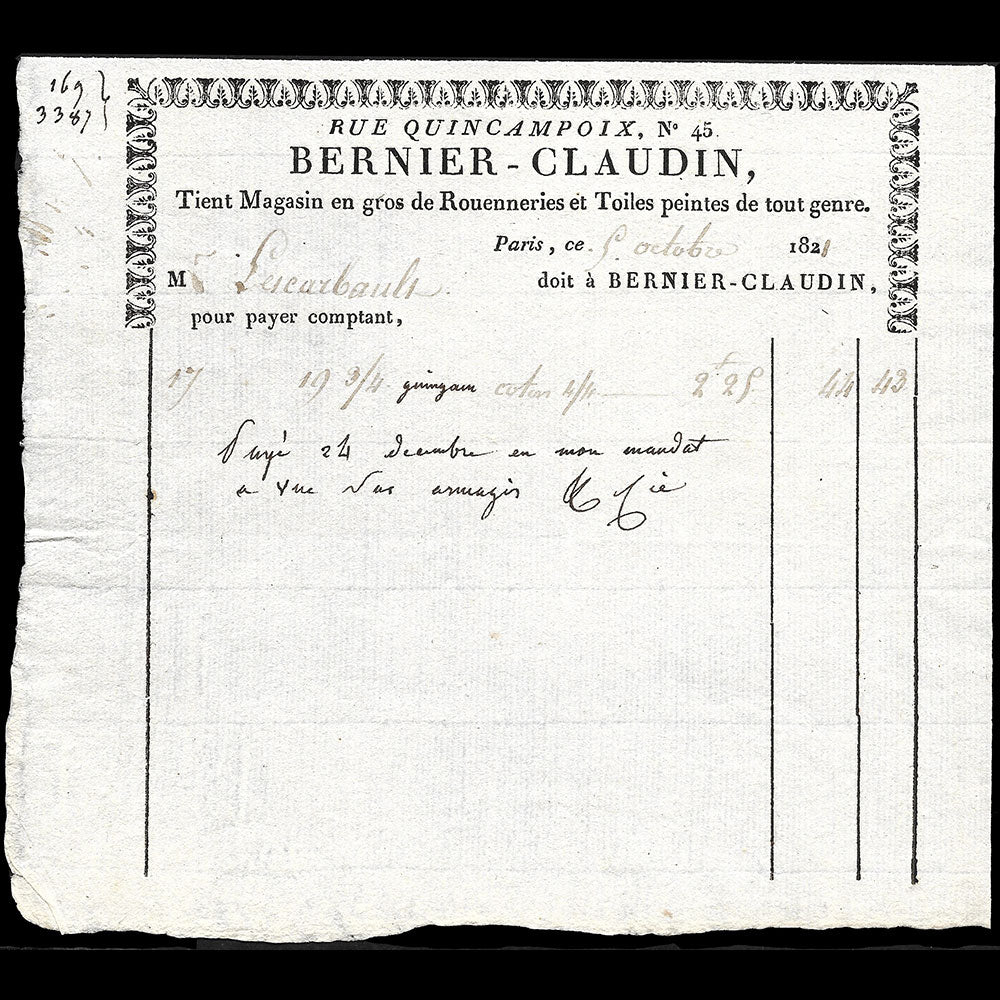 169
3387
RUE QUINCAMPOIX, Nº 45.
BERNIER-CLAUDIN,
Tient Magasin en gros de Rouenneries et Toiles peintes de tout genre.
Paris, ce 5. octobre 1821
M Lescarbault doit à BERNIER-CLAUDIN,
pour payer comptant,
17 19 3/4 guingam coton 4/4 2f 25. 44 43
Payé 24 decembre en mon mandat
a vue